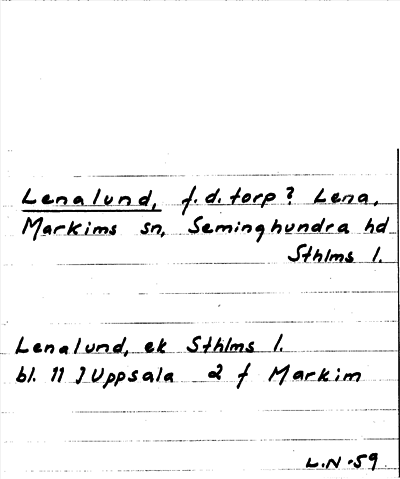 Lenalund, f.d. torp? Lena,
Markims sn, Seminghundra hd
Sthlms l.
Lenalund, ek Sthlms l.
bl. 11 J Uppsala 2 f Markim
L.N-59